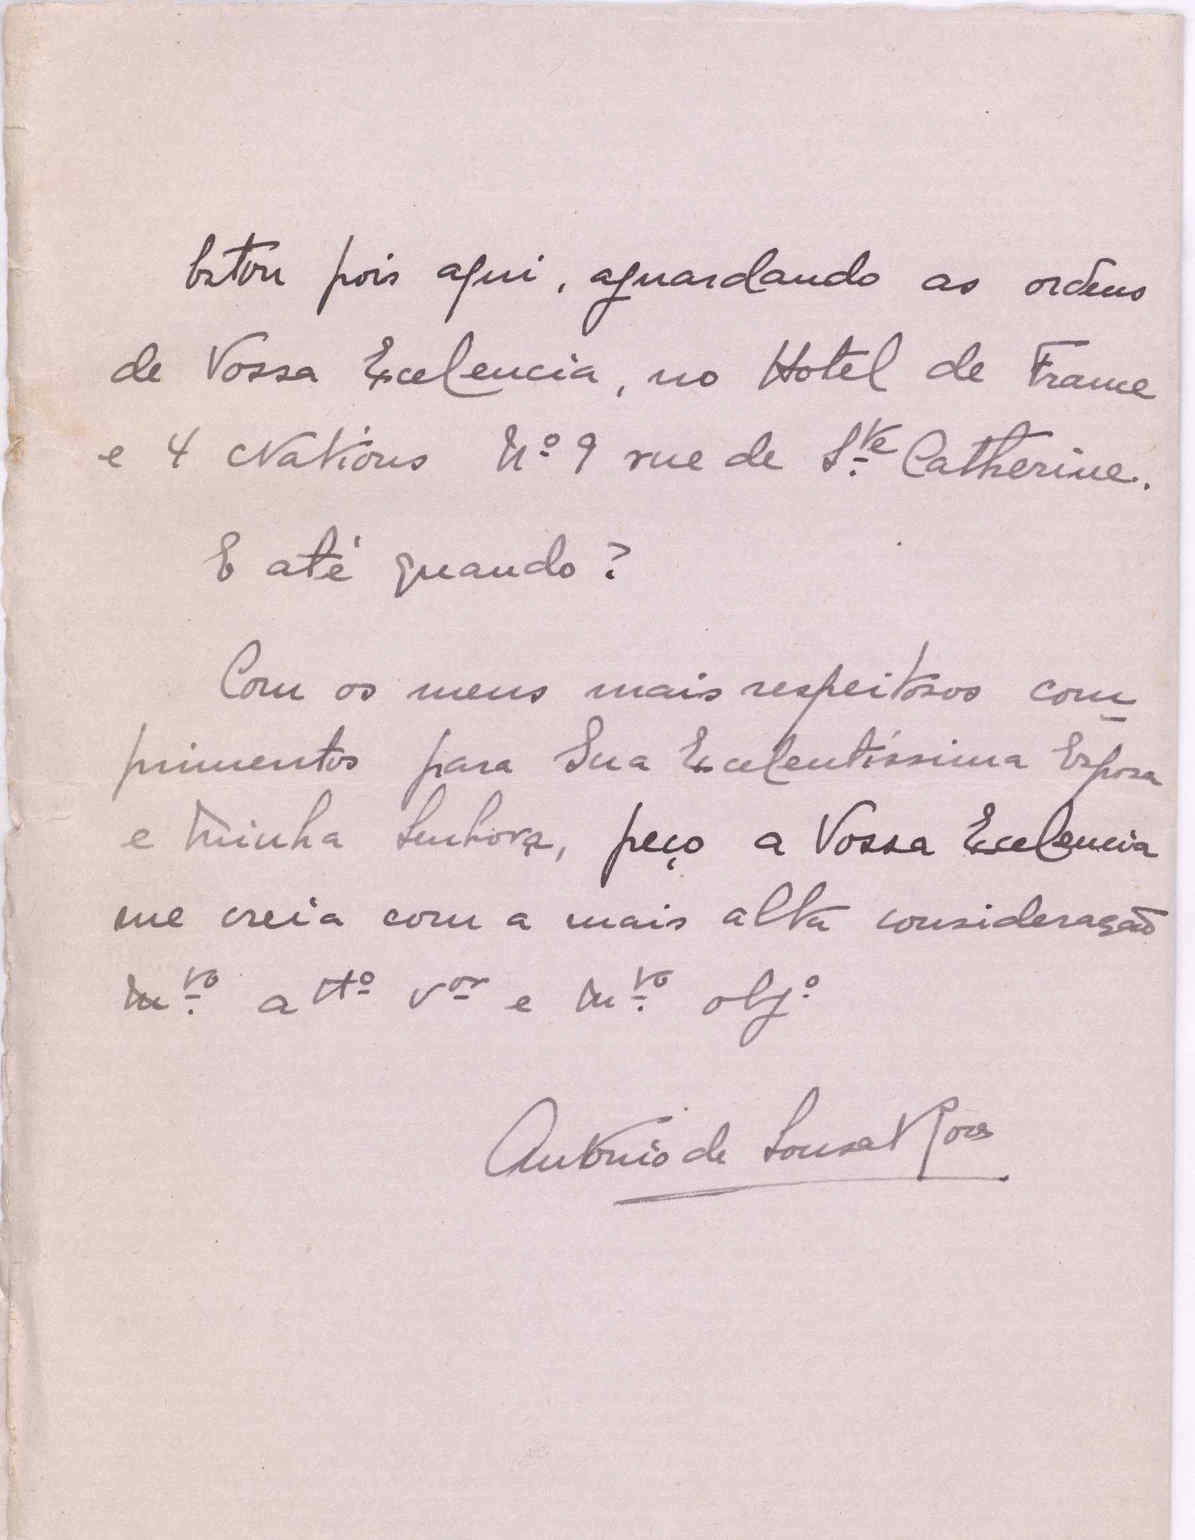 Estou pois aqui, aguardando as ordens
de Vossa Excelencia, no Hotel de France
e 4 Nations Nº 9 rue de Ste Catherine.
E até quando?
Com os meus mais respeitosos com
primentos para Sua Excelentíssima Esposa
e Minha Senhora, peço a Vossa Excelencia
me creia com a mais alta consideração
Mto attº vor e Mto obgº
António de Sousa